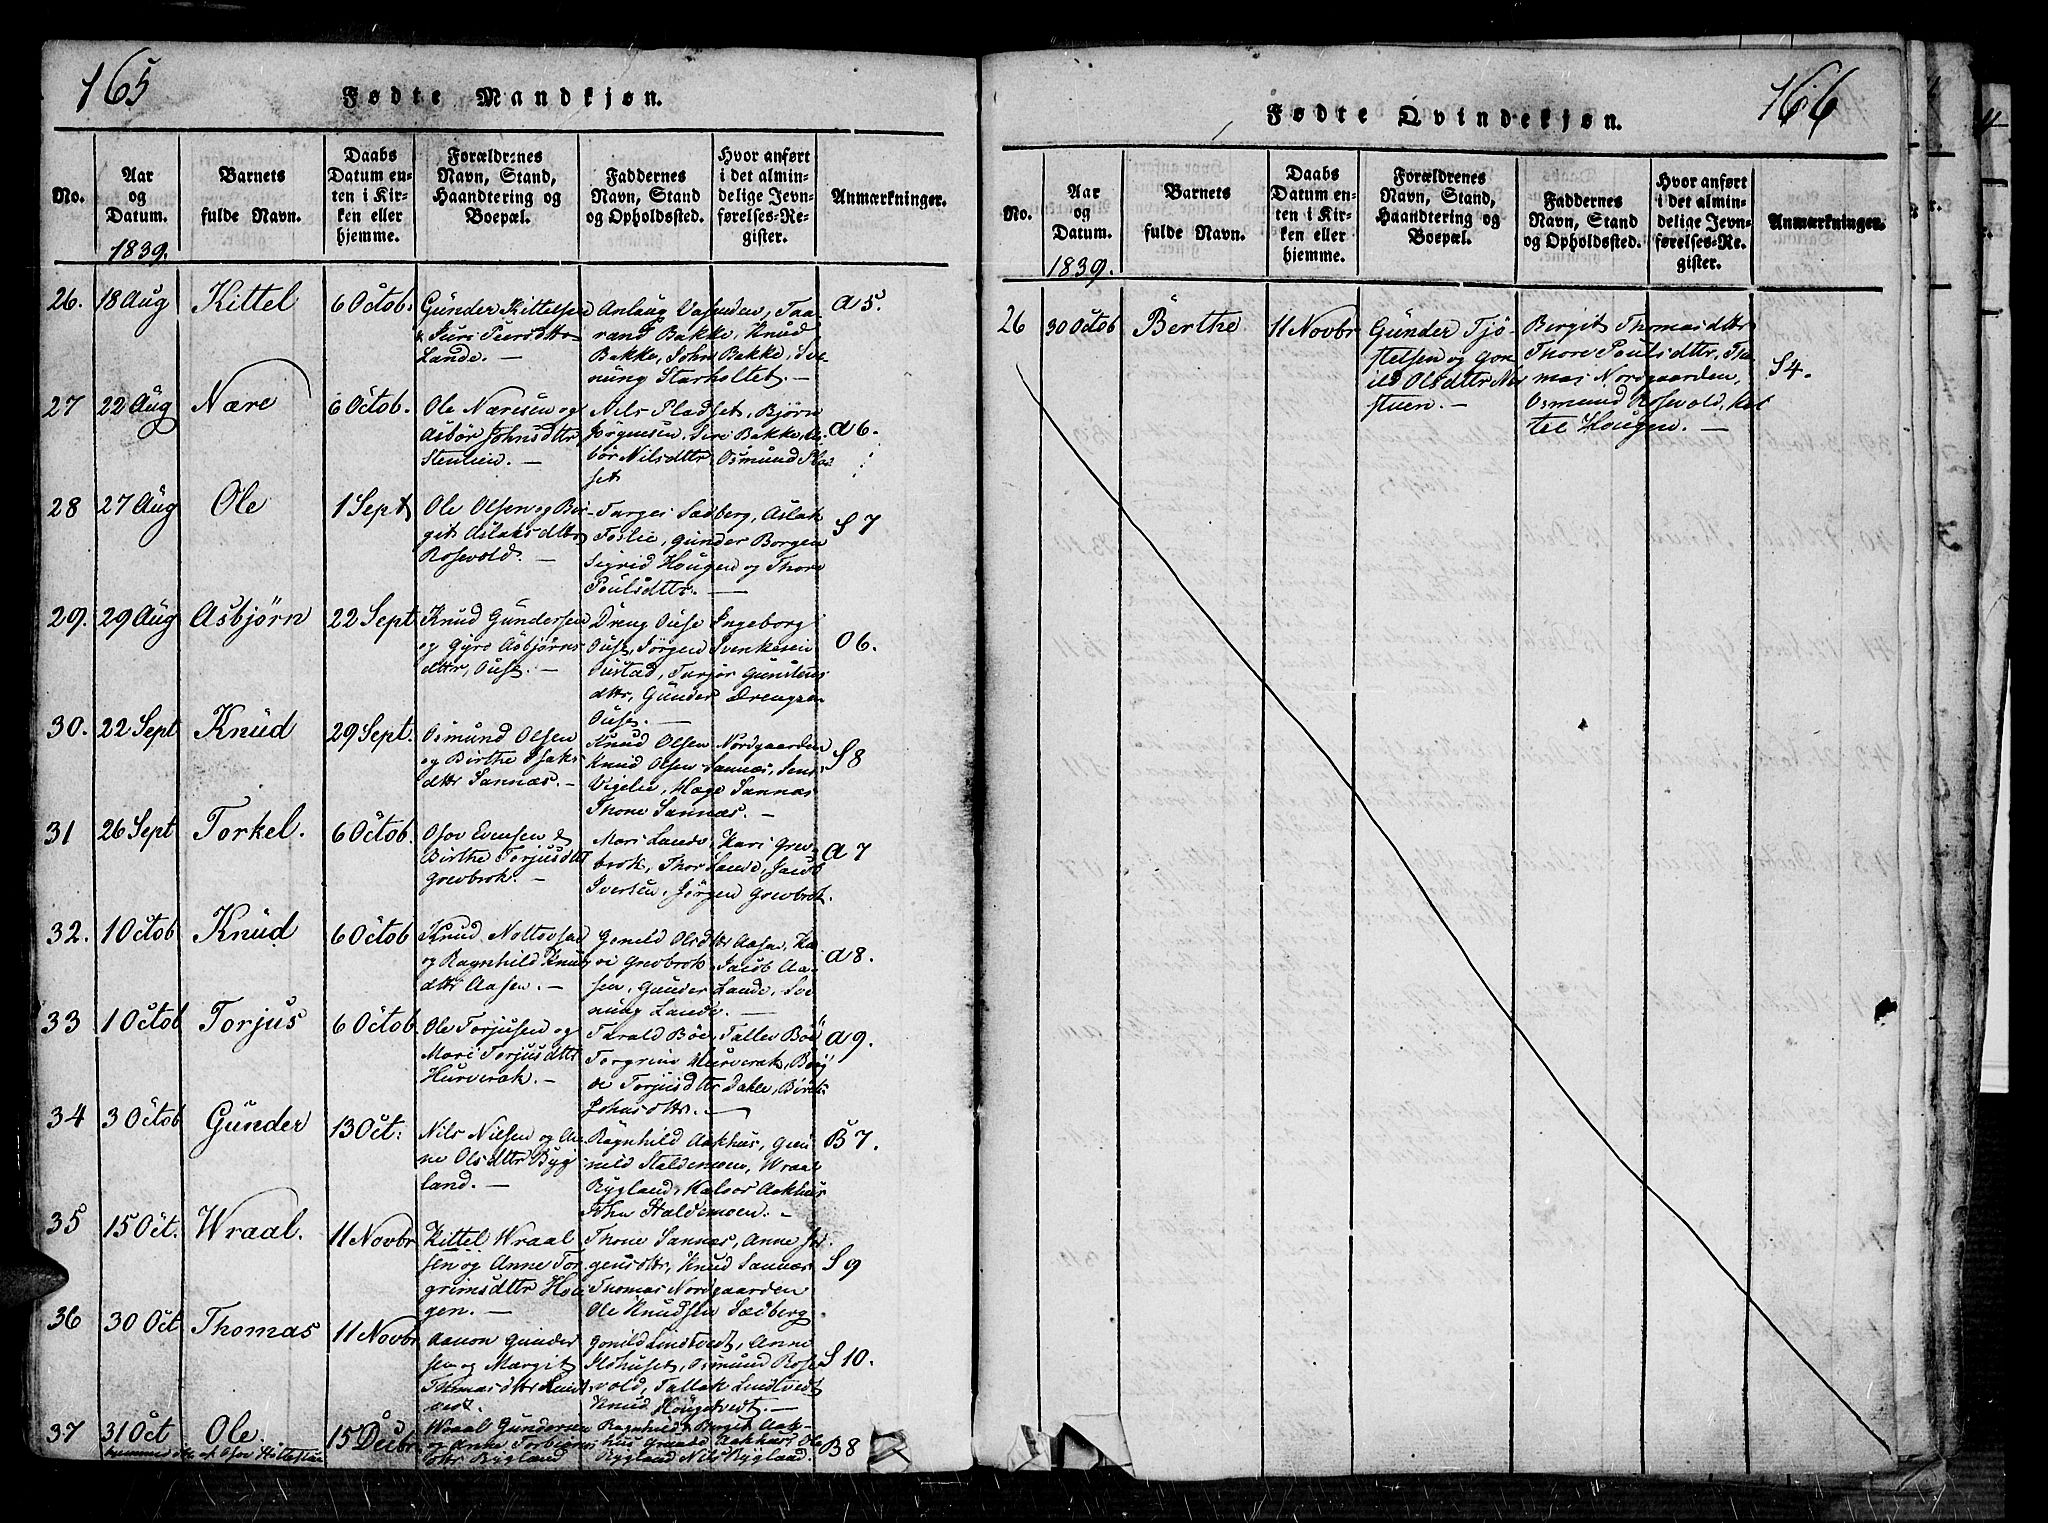 165
Fødte Mandkjøn.
No.
Aar
og
Datum.
1839.
Barnets
fulde Navn.
Daabs
Datum en-
ten i Kir-
ken eller
hjemme.
Forældrenes
Navn, Stand,
Haandtering og
Boepæl.
Faddernes
Navn, Stand
og Opholdssted.
Hvor anført
i det almin-
delige Jevn-
førelses-Re-
gister.
Anmærkninger.
26. 18 Aug Kittel 6 Octob.
Gunder Kittelsen
Lande. —
Anlaug
Bakke, Knud
Bakke, John Bakke,
nung Starholtet. —
a 5.
27 22 Aug Nære 6 Octob.
Ole Næresen og
Asbør Johnsdttr
Stenlien. —
Nils Pladset, Bjørn
Jørgensen, Siri Bakke,
bør Nilsdttr, Osmund Pla
set
a 6.
28 27 Aug Ole 1 Sept
Ole Olsen og Bir-
git Aslaksdttr
Rosevold. —
Targei Sædberg, Aslak
Foslie, Gunder Borgen
Sigrid Hougen og Thore
Poulsdttr. —
S 7
29. 29 Aug Asbjørn 22 Sept
Knud Gundersen
og Gyro Asbjørns
dttr, Ouse. —
Dreng Ouse Ingeborg
Ouse, Jørgen Svenkesen
Tarjer Gunstens
dttr, Gunder Drengsen
Ouse. —
O 6.
30. 22 Sept Knud 29 Sept.
Osmund Olsen
og Birthe Isaks
dttr Sannæs. —
Knud Olsen Nordgaarden
Knud Olsen Sannæs, Jens
Vigelie, Hæge Sannæs
Thone Sannæs. —
S 8
31 26 Sept Torkel. 6 Octob.
Osov Evensen &
Birthe Torjusdttr
Grevbrok. —
Mari Lande, Kari Grev
brok, Thor Lande, Jacob
Iversen, Jørgen Grevbrok.
a 7
32. 1 Octob Knud 6 Octob
Knud Nottovsen
og Ragnhild Knuds
dttr Aasen. —
Gonild Olsdttr Aasen, Ka
ri Grevbrok, Jacob Aa-
sen, Gunder Lande, Sve
nung Lande. —
a 8.
33 1 Octob Torjus 6 Octob
Ole Torjusen og
Mari Torjusdttr
Hurverak. —
Tarald Böe, Tallev Böe
Torgrim Hurverak,
Torjusdttr Dale,
Johnsdttr. —
a 9.
34 3 Octob Gunder 13 Oct:
Nils Nilsen og An-
ne Olsdttr Byg
land. —
Ragnhild Aakhus, Gun
nild Staldemoen, Wraal
Bygland, Halvor Aakhus
John Staldemoen. —
B 7.
35 15 Oct. Wraal. 11 Novbr
Kittel Wraal
sen og Anne Tor
grimsdttr Hou
gen. —
Thone Sannæs, Anne Jør
gensdttr, Knud Sannæs
Thomas Nordgaarden
Ole Knudsen Sædberg
S 9
36 30 Oct Thomas 11 Novbr
Aanon Gunder
sen og Margit
Thomasdttr Lindt
vedt.
Gonild Lindtvedt, Anne
Ildhuset, Osmund Rose
vold, Tallak Lindtvedt
Knud Hougetvedt. —
S 10.
37 31 Oct Ole. 15 Decbr
Wraal Gundersen
og Anke Torbiørns
dttr Bygland
Ragnhild & Birgit Aak-
hus Gunder Aakhus, Ole
Bygland Nils Bygland.
B 8
166
Fødte Qvindekjøn.
No.
Aar
og
Datum.
1839.
Barnets
fulde Navn.
Daabs
Datum en-
ten i Kir-
ken eller
hjemme.
Forældrenes
Navn, Stand,
Haandtering og
Boepæl.
Faddernes
Navn, Stand
og Opholdssted.
Hvor anført
i det almin-
delige Jevn-
førelses-Re-
gister.
Anmærkninger.
26 30 Octob Berthe 11 Novbr
Gunder Tjö-
stelsen og Gon
ild Olsdttr Ne
stuen. —
Birgit Thomasdttr
Thore Poulsdttr, Tho
mas Nordgaarden,
Osmund Rosevold, Ket
tel Hougen. —
S 4.